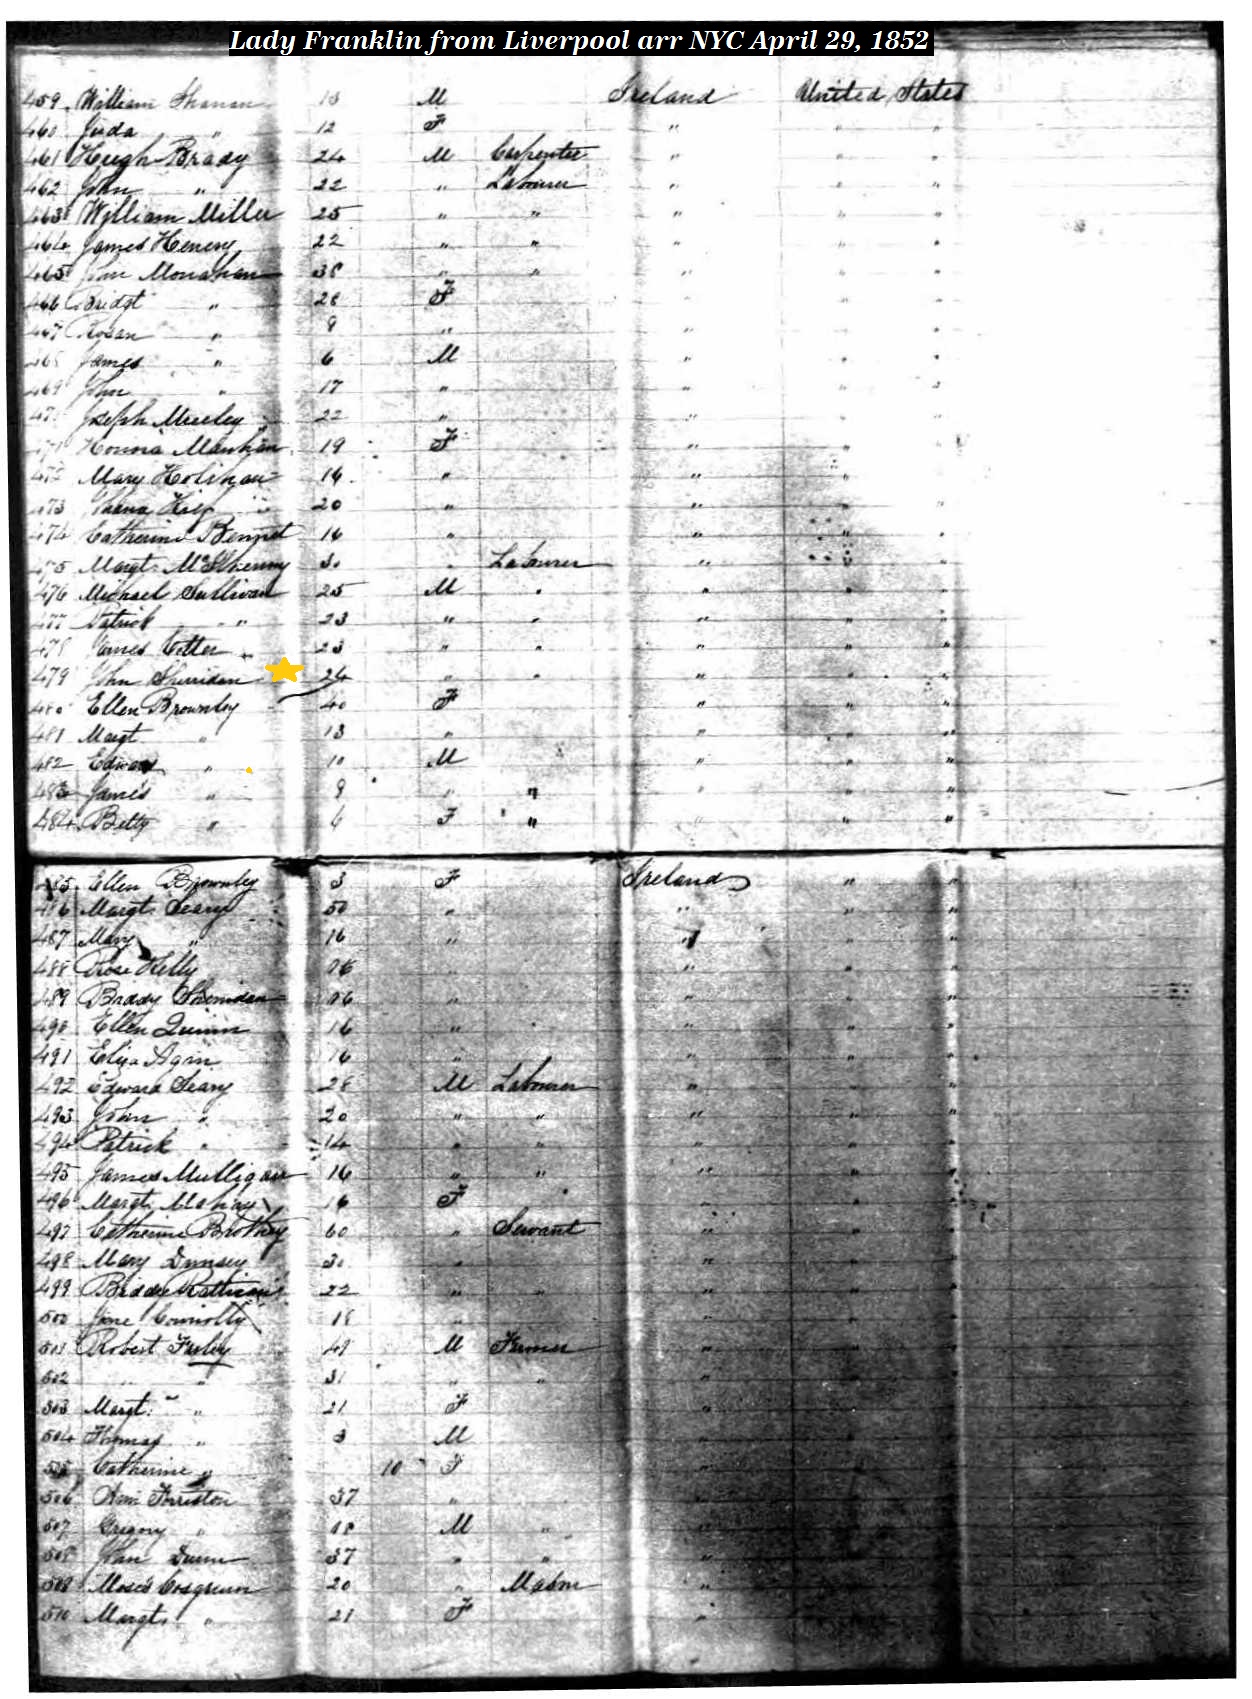 Lady Franklin from Liverpool arr NYC April 29, 1852
459 William 13 M Ireland United States
460 Juda " 12 F " " "
461 Hugh Brady 24 M Carpenter " " "
462 John " 22 " Labourer " " "
463 William Miller 25 " " " " "
464 James Heneny 22 " " " " "
465 John Monahan 38 " " " " "
466 Bridgt " 28 F " " "
467 Rosan " 8 " " " "
468 James " 6 M " " "
469 John " 17 " " " "
47 Joseph 22 " " "
471 Honora 19 F " " "
472 Mary 16 " " " "
473 20 " " " "
474 Catherine Bennet 16 " " " "
475 Margt 30 " Labourer " " "
476 Michael Sullivan 25 M " " " "
477 Patrick " 23 " " " " "
478 James Cotter 23 " " " " "
479 John Sherridan 24 " " " " "
480 Ellen Brownley 40 F " " "
481 Margt " 13 " " " "
482 Edward " 10 M " " "
483 James " 8 " " " " "
484 Betty " 4 F " " " "
485 Ellen Brownley 3 F Ireland " "
486 Margt Seary 50 " " " "
487 Mary " 16 " " " "
488 Rose Kelly 16 " " "
489 Brady Sherridan 16 " " " "
490 Ellen Quinn 16 " " " " "
491 Eliza Agin 16 " " " "
492 Edward Seary 28 M Labourer " " "
493 John " 20 " " " " "
494 Patrick " 14 " " " " "
495 James Mulligan 16 " " " " "
496 Margt 16 F " " " "
497 Catherine 60 " Servant " " "
498 Mary Dunsey 30 " " " "
499 22 " " " " "
500 Jane Connolly 18 " " " "
501 Robert Farley 49 M Farmer " " "
502 " " 31 " " " " "
503 Margt. " 21 F " " "
504 Thomas " 3 M " " "
505 Catherine " 10 F " " "
506 Ann 37 " " " "
507 Gregory " 18 M " " " "
508 John Dunn 37 " " " " "
509 Moses 20 " Mason " " "
510 Margt. " 21 F " " "